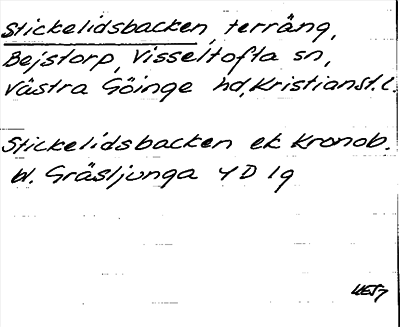 Stickelidsbacken, terräng,
Bejstorp, Visseltofta sn,
Västra Göinge hd, Kristianst. l.
Stickelidsbacken ek Kronob.
bl. Gräsljunga 4 D 1g